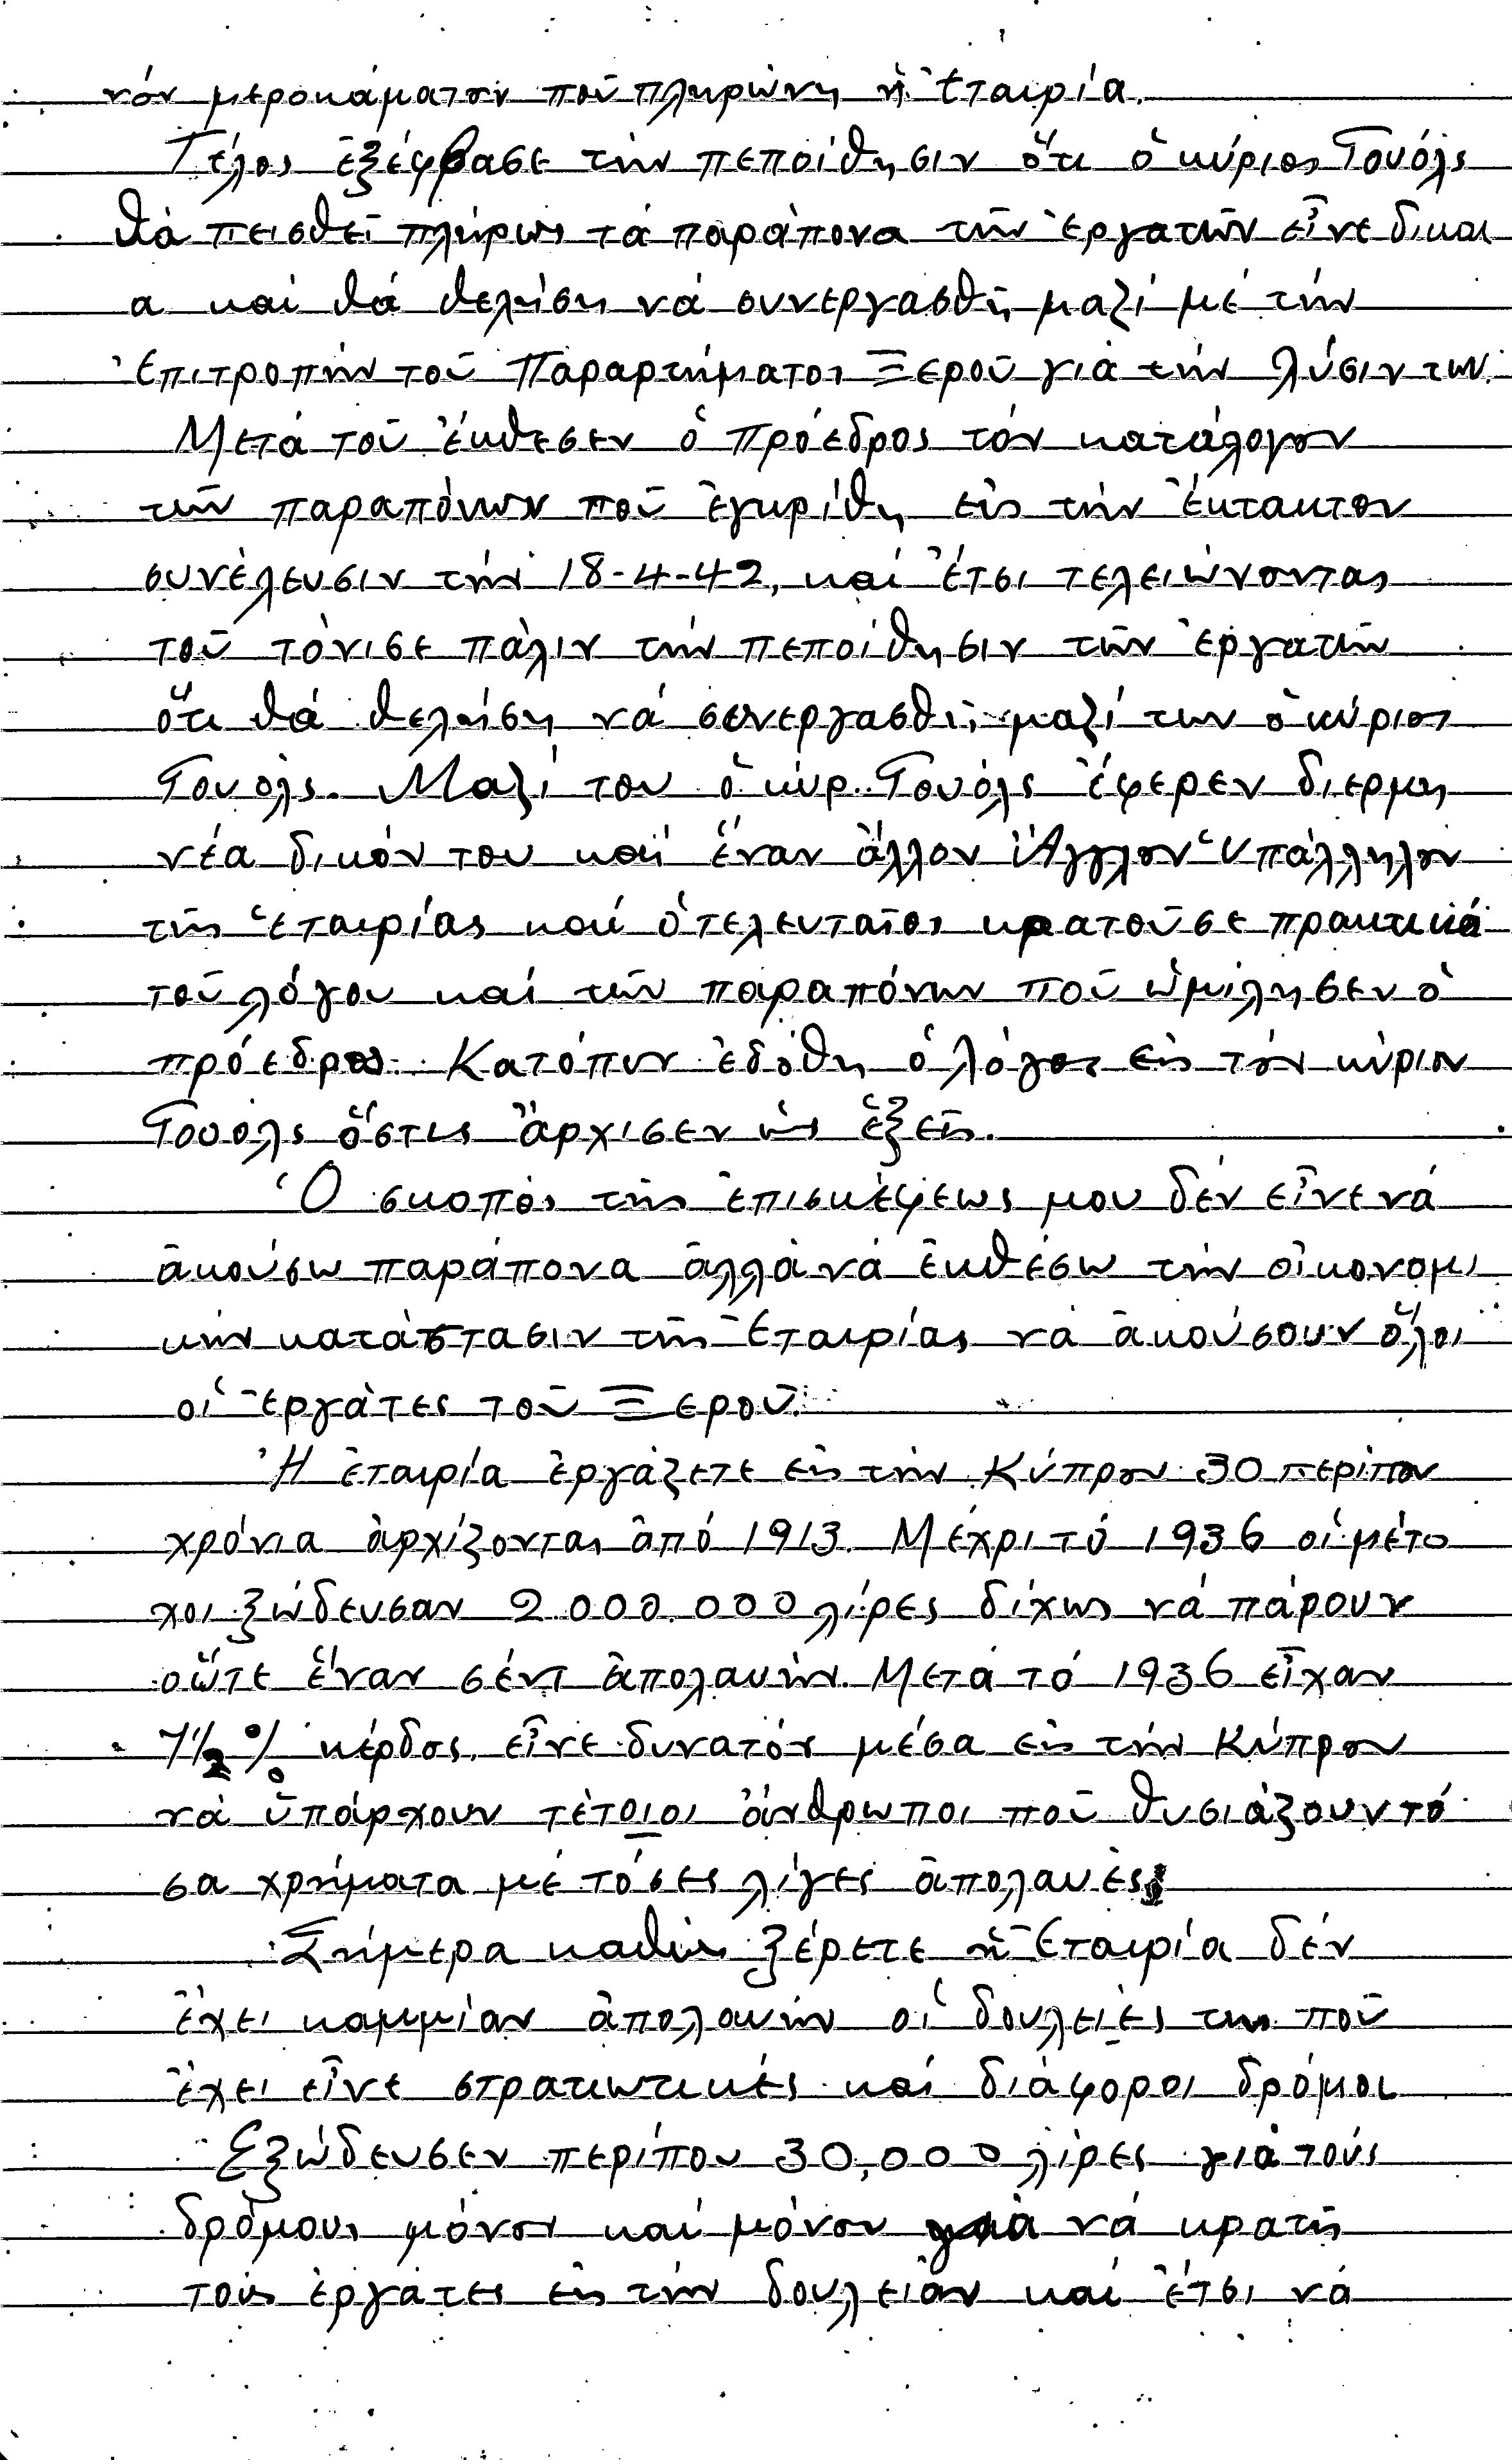 νόν μεροκάματον ποῦ πληρώνη ἡ Ἑταιρία.
Τέλος ἐξέφρασε τήν πεποίθησιν ὅτι ὁ κύριος Γουόλς
θά πεισθεῖ πλήρως τά παράπονα τῶν ἐργατῶν εἶνε δικαι
α καί θά θελήση νά συνεργασθῆ μαζί μέ τήν
Ἐπιτροπήν τοῦ Παραρτήματος Ξεροῦ γιά τήν λύσιν των.
Μετά τοῦ ἔκθεσεν ὁ πρόεδρος τόν κατάλογον
τῶν παραπόνων ποῦ ἐγκρίθη εἰς τήν ἔκτακτον
συνέλευσιν τήν 18-4-42, καί ἔτσι τελειώνοντας
τοῦ τόνισε πάλιν τήν πεποίθησιν τῶν ἐργατῶν
ὅτι θά θελήση νά συνεργασθῆ μαζί των ὁ κύριος
Γουολς. Μαζί του ὁ κύρ. Γουόλς ἔφερεν διερμη
νέα δικόν του καί ἕναν ἄλλον Ἄγγλον Ὑπάλληλον
τῆς ἑταιρίας καί ὁ τελευταῖος κρατοῦσε πρακτικά
τοῦ λόγου καί τῶν παραπόνων ποῦ ὡμίλησεν ὁ
πρόεδρος. Κατόπιν ἐδόθη ὁ λόγος εἰς τόν κύριον
Γουολς ὅστις ἄρχισεν ὡς ἑξεῖς.
Ὁ σκοπός τῆς ἐπισκέψεως μου δέν εἶνε νά
ἀκούσω παράπονα ἀλλά νά ἐκθέσω τήν οἰκονομι
κήν κατάστασιν τῆς Ἑταιρίας νά ἀκούσουν ὅλοι
οἱ ἐργάτες τοῦ Ξεροῦ.
Ἡ ἑταιρία ἐργάζετε εἰς τήν Κύπρον 30 περίπου
χρόνια ἀρχίζοντας ἀπό 1913. Μέχρι τό 1936 οἱ μέτο
χοι ξώδευσαν 2.000.000 λίρες δίχως νά πάρουν
οὔτε ἕναν σέντ ἀπολαυήν. Μετά τό 1936 εἶχαν
7½ % κέρδος, εἶνε δυνατόν μέσα εἰς τήν Κύπρον
νά ὑπάρχουν τέτοιοι ἄνθρωποι ποῦ θυσιάζουν τό
σα χρήματα μέ τόσες λίγες ἀπολαυές;
Σήμερα καθώς ξέρετε ἡ Ἑταιρία δέν
ἔχει καμμίαν ἀπολαυήν οἱ δουλειές της ποῦ
ἔχει εἶνε στρατιωτικές καί διάφοροι δρόμοι
Ἐξώδευσεν περίπου 30,000 λίρες γιά τούς
δρόμους μόνον καί μόνον γιά νά κρατῆ
τούς ἐργάτες εἰς τήν δουλειάν καί ἔτσι νά